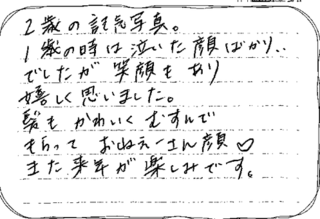 2歳の記念写真。
1歳の時は泣いた顔ばかり..
でしたが 笑顔も あり
嬉しく思いました。
髪も かわいく むすんで
もらって おねえーさん顔♡
また来年が楽しみです。